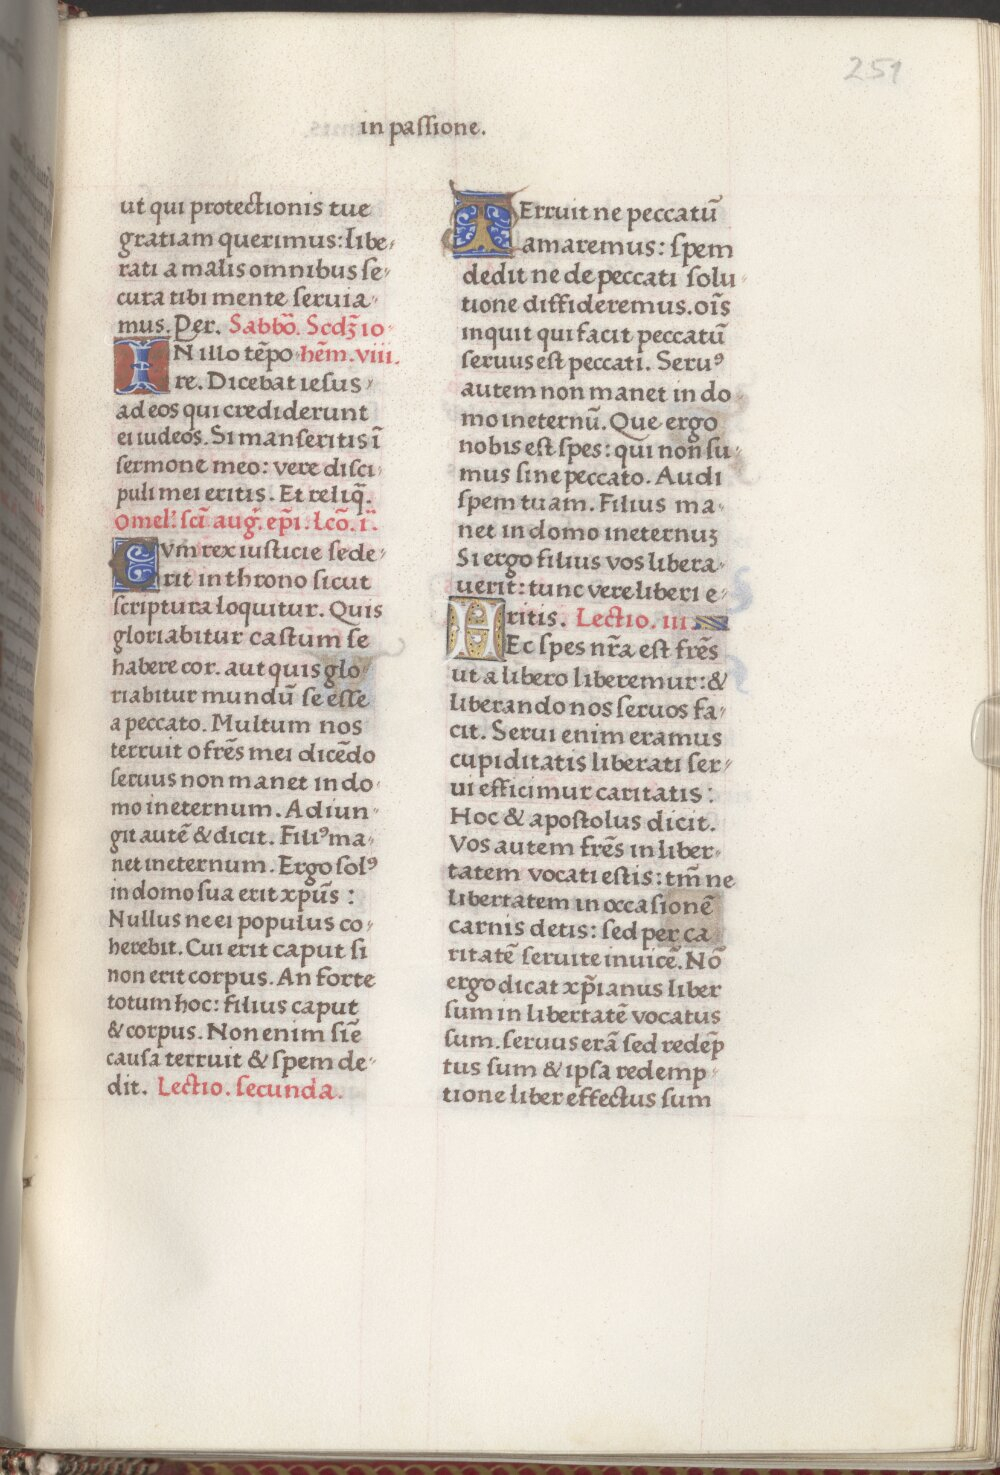 251
in passione.
ut qui protectionis tue
gratiam querimus: libe-
rati a malis omnibus se-
cura tibi mente seruia-
mus. Per. Sabbõ. Scdȝ io-
IN illo tẽpo- hẽm. viii.
re. Dicebat iesus
ad eos qui crediderunt
ei iudeos. Si manseritis ĩ
sermone meo: vere disci-
puli mei eritis. Et reliq̃.
Omel'. scĩ aug̃. ep̃i. lcõ. i.
CVm rex iusticie sede-
rit in throno sicut
scriptura loquitur. Quis
gloriabitur castum se
habere cor. aut quis glo-
riabitur mundũ se esse
a peccato. Multum nos
terruit o frẽs mei dicẽdo
seruus non manet in do-
mo in eternum. Adiun-
git autẽ & dicit. Filiꝰ ma-
net in eternum. Ergo solꝰ
in domo sua erit xp̃us :
Nullus ne ei populus co-
herebit. Cui erit caput si
non erit corpus. An forte
totum hoc: filius caput
& corpus. Non enim siẽ
causa terruit & spem de-
dit. Lectio. secunda.
TErruit ne peccatũ
amaremus: spem
dedit ne de peccati solu-
tione diffideremus. oĩs
inquit qui facit peccatũ
seruus est peccati. Seruꝰ
autem non manet in do-
mo in eternũ. Que ergo
nobis est spes: qui non su-
mus sine peccato. Audi
spem tuam. Filius ma-
net in domo in eternuȝ
Si ergo filius vos libera-
uerit: tunc vere liberi e-
ritis. Lectio. iii
HEc spes nr̃a est frẽs
ut a libero liberemur: &
liberando nos seruos fa-
cit. Serui enim eramus
cupiditatis liberati ser-
ui efficimur caritatis :
Hoc & apostolus dicit.
Vos autem frẽs in liber-
tatem vocati estis: tm̃ ne
libertatem in occasionẽ
carnis detis: sed per ca
ritatẽ seruite inuicẽ. Nõ
ergo dicat xp̃ianus liber
sum in libertatẽ vocatus
sum. seruus erã sed redẽp
tus sum & ipsa redemp-
tione liber effectus sum